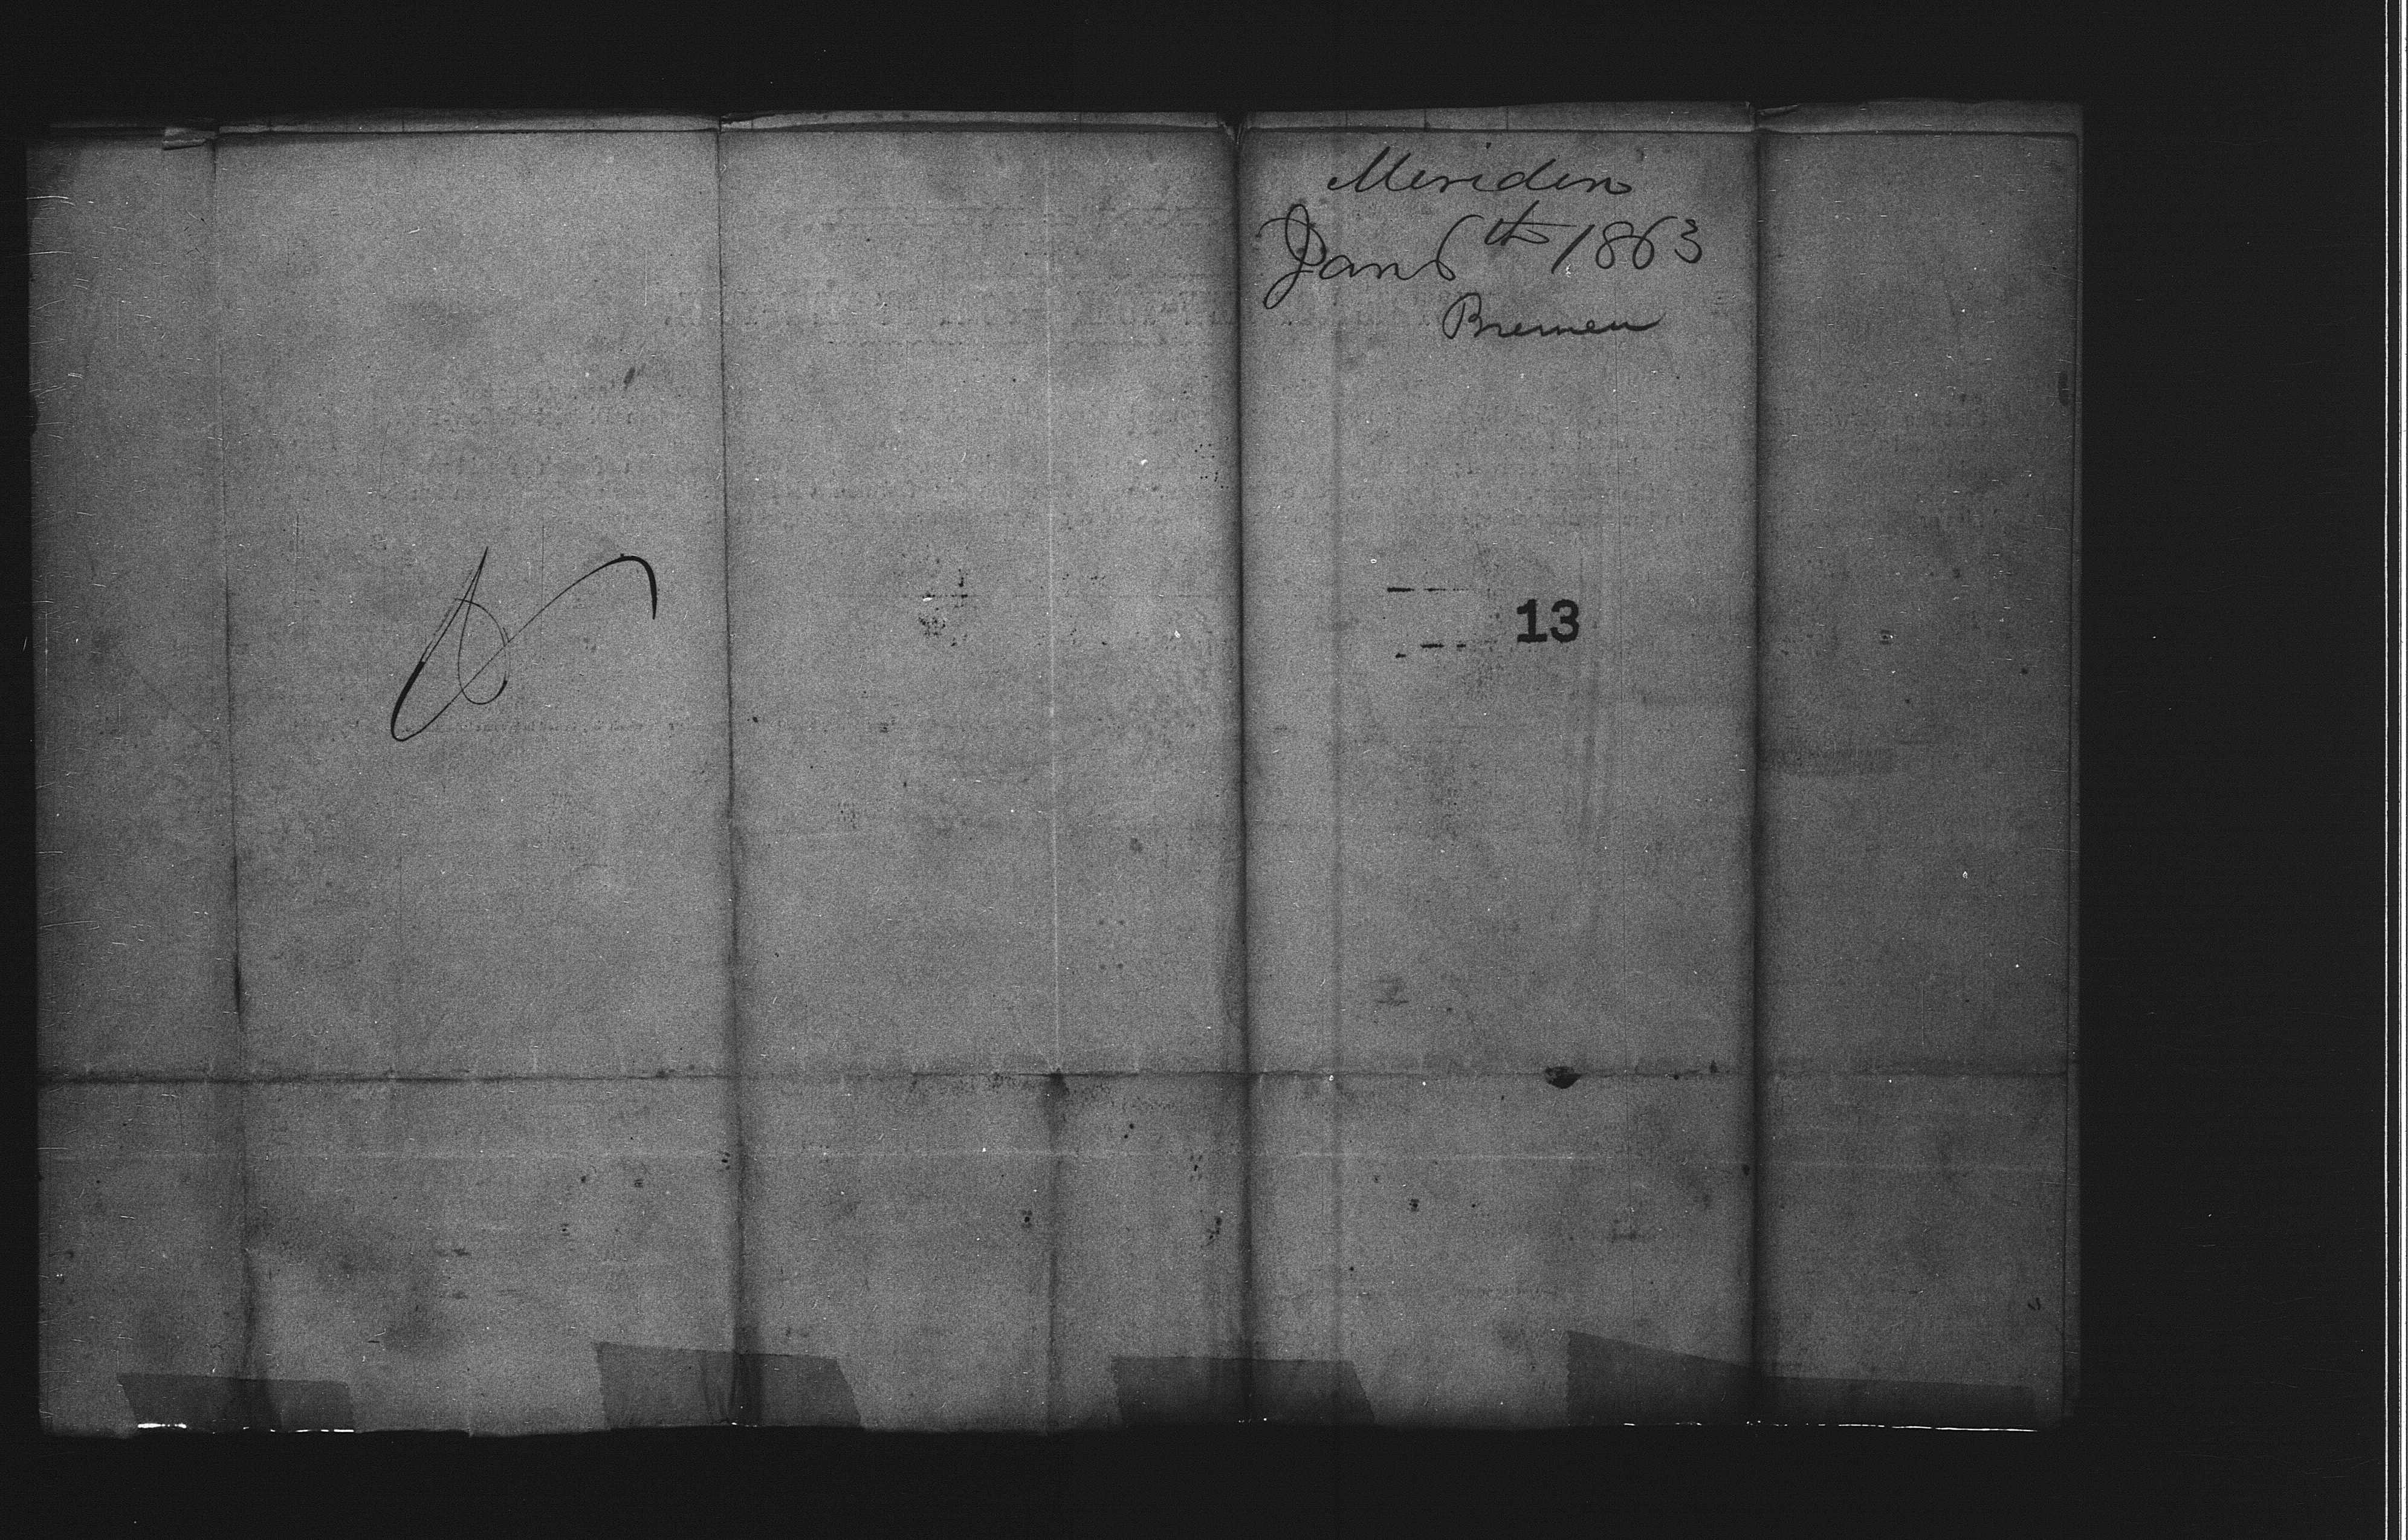 Meriden
Jan 6th 1863
Bremen
13